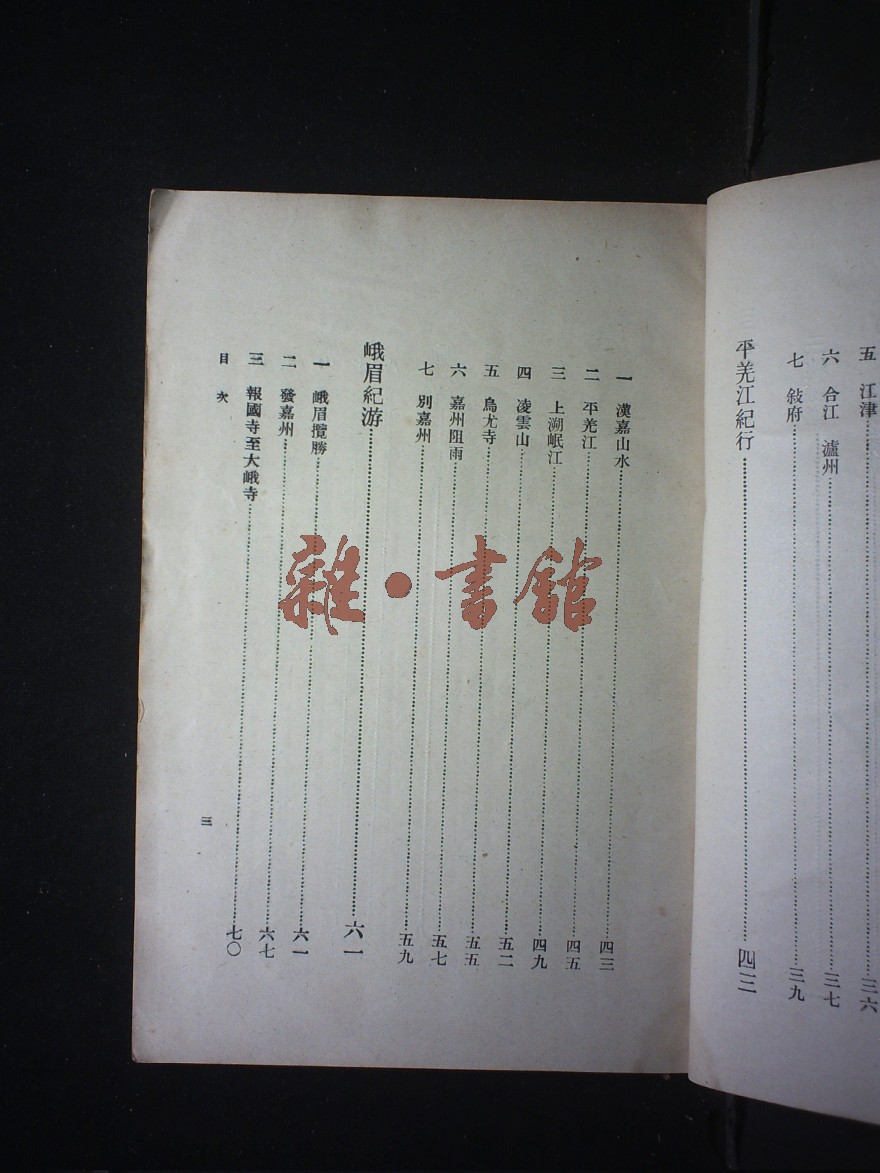 五　江津……三六
六　合江　瀘州……三七
七　敍府……三九
平羌江紀行……四三
一　漢嘉山水……四三
二　平羌江……四五
三　上溯岷江……四九
四　凌雲山……五二
五　烏尤寺……五五
六　嘉州阻雨……五七
七　別嘉州……五九
峨眉紀游……六一
一　峨眉攬勝……六一
二　發嘉州……六七
三　報國寺至大峨寺……七〇
目次
三
雜·書館